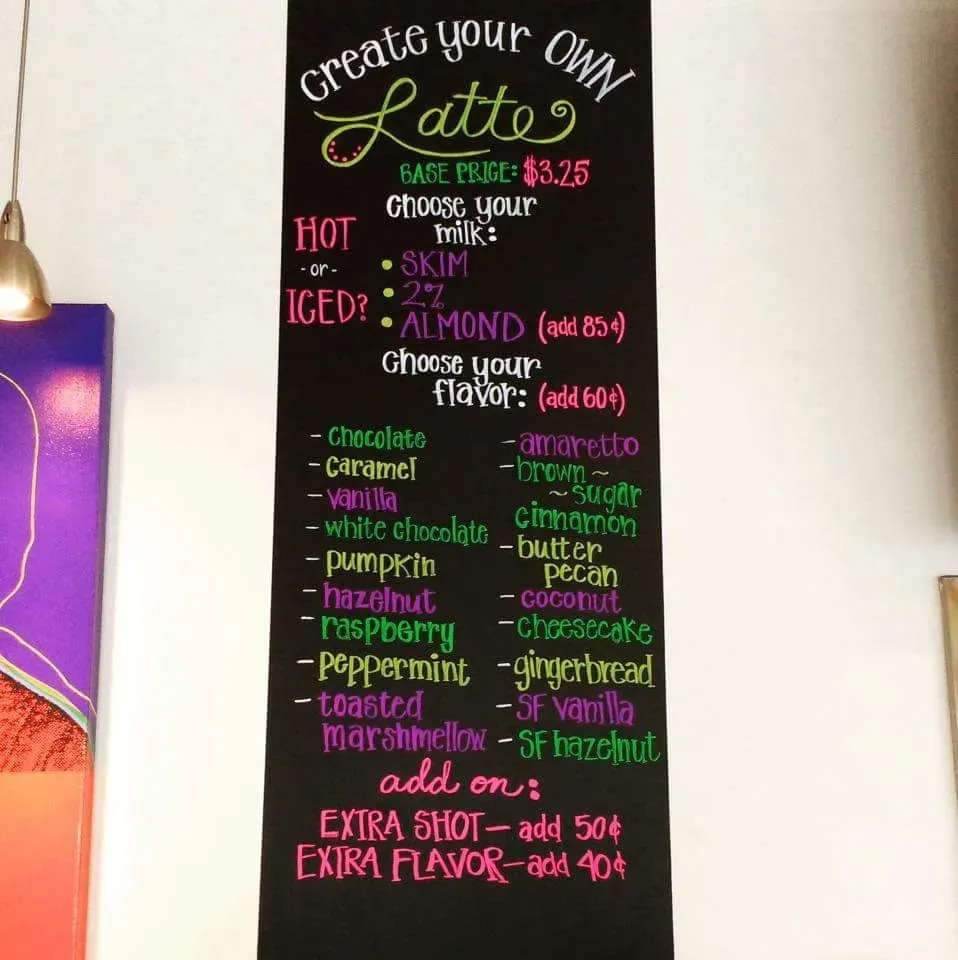 Create your OWN
Latte
BASE PRICE: $3.25
HOT
- or -
ICED?
Choose your
milk:
• SKIM
• 2%
• ALMOND (add 85¢)
Choose your
flavor: (add 60¢)
- chocolate
- caramel
- vanilla
- white chocolate
- pumpkin
- hazelnut
- raspberry
- peppermint
- toasted
marshmellow
- amaretto
- brown ~
~ sugar
cinnamon
- butter
pecan
- coconut
- cheesecake
- gingerbread
- SF vanilla
- SF hazelnut
add on:
EXTRA SHOT — add 50¢
EXTRA FLAVOR — add 40¢